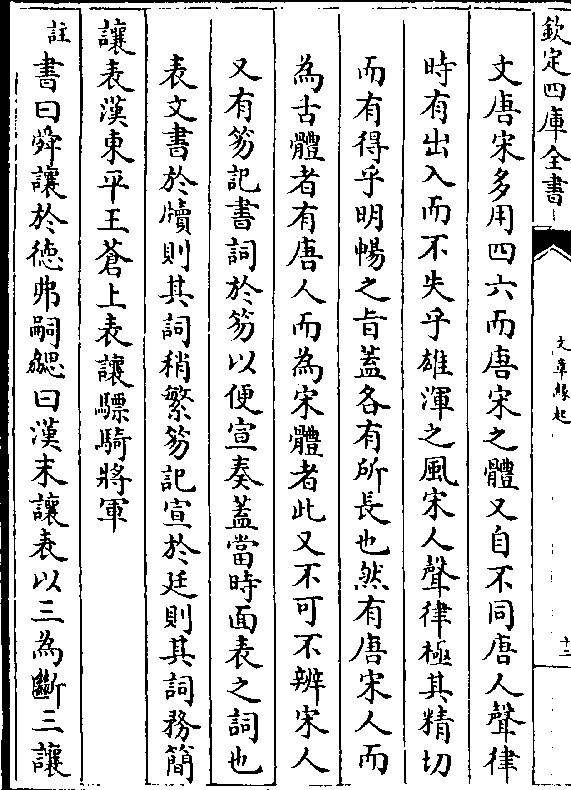 欽定四庫全書
文章緣起
十二
文唐宋多用四六而唐宋之體又自不同唐人聲律
時有出入而不失乎雄渾之風宋人聲律極其精切
而有得乎明暢之旨蓋各有所長也然有唐宋人而
為古體者有唐人而為宋體者此又不可不辨宋人
又有笏記書詞於笏以便宣奏蓋當時面表之詞也
表文書於牘則其詞稍繁笏記宣於廷則其詞務簡
讓表漢東平王蒼上表讓驃騎將軍
註書曰舜讓於德弗嗣勰曰漢末讓表以三為斷三讓